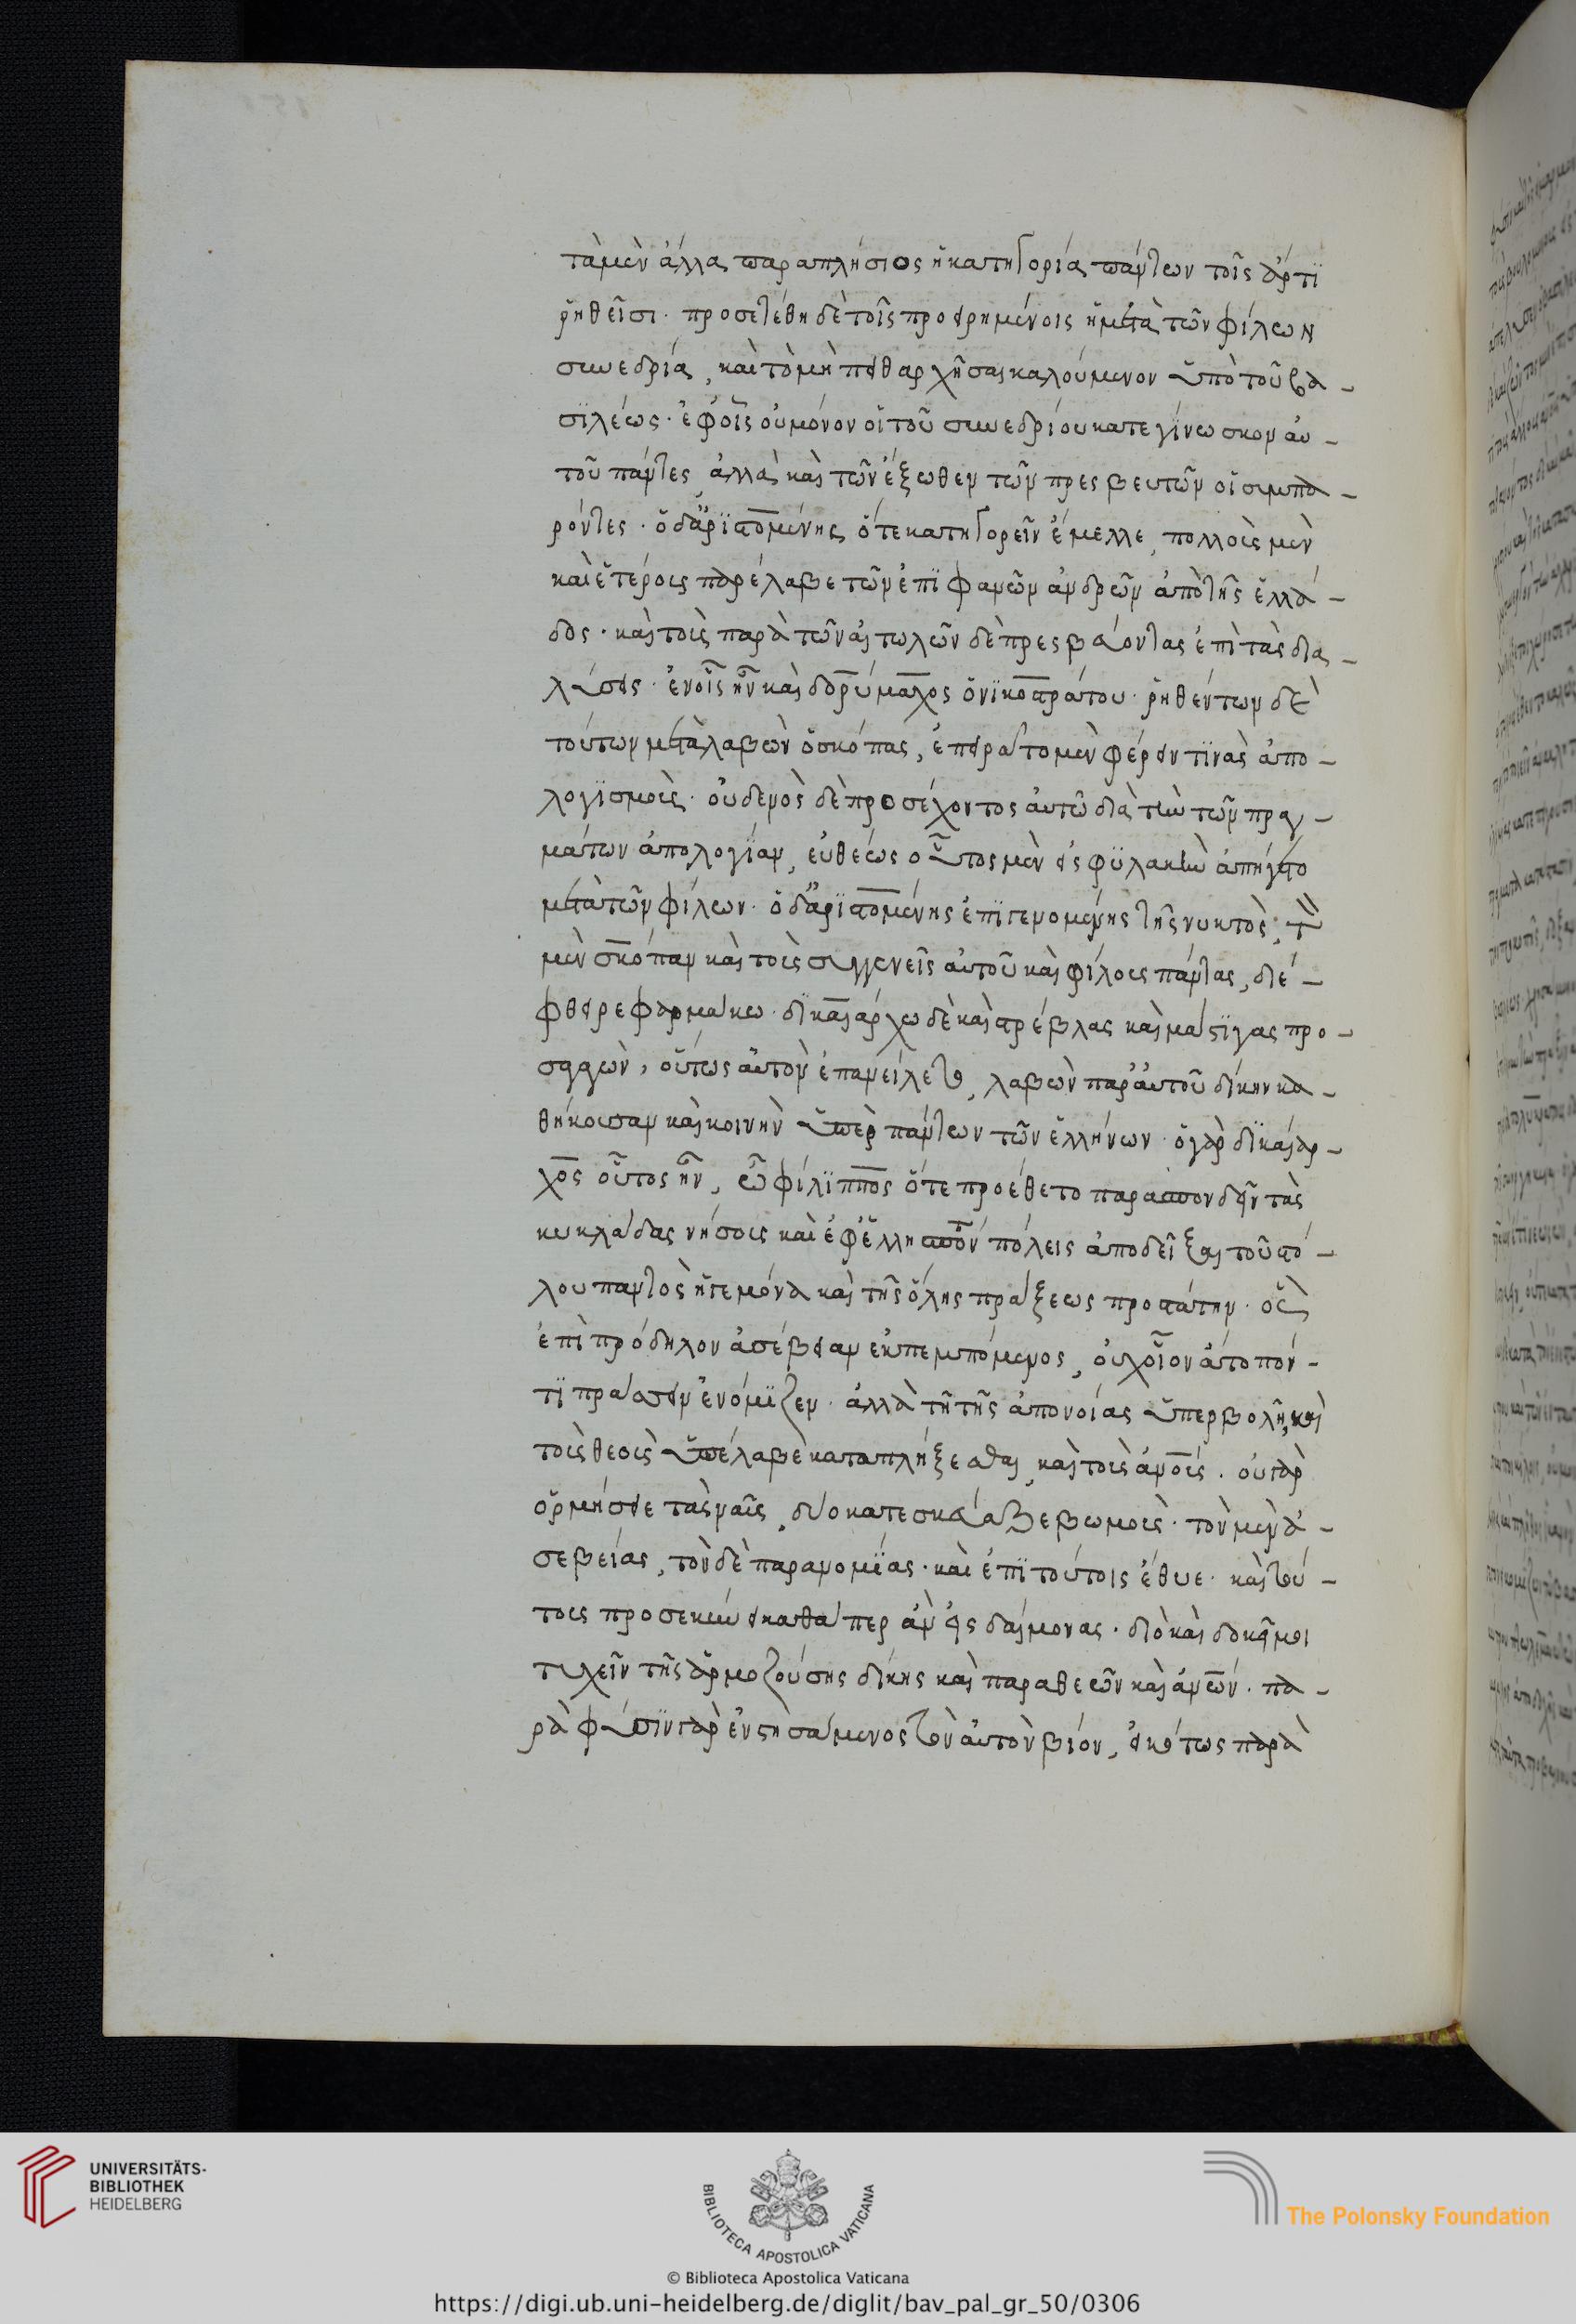 τὰ μὲν ἄλλα παραπλήσιος ἡ κατηγορία πάντων τοῖς ἄρτι
ῥηθεῖσι· προσετέθη δὲ τοῖς προειρημένοις ἡ μετὰ τῶν φίλων
συνεδρία, καὶ τὸ μὴ πειθαρχῆσαι καλούμενον ὑπὸ τοῦ βα-
σιλέως· ἐφ' οἷς οὐ μόνον οἱ τοῦ συνεδρίου κατεγίνωσκον αὐ-
τοῦ πάντες, ἀλλὰ καὶ τῶν ἔξωθεν τῶν πρεσβευτῶν οἱ συμπα-
ρόντες· ὁ δ' ἀριστομένης ὅτε κατηγορεῖν ἔμελλε, πολλοὺς μὲν
καὶ ἑτέρους παρέλαβε τῶν ἐπιφανῶν ἀνδρῶν ἀπὸ τῆς ἑλλά-
δος· καὶ τοὺς παρὰ τῶν αἰτωλῶν δὲ πρεσβεύοντας ἐπὶ τὰς δια-
λύσεις· ἐν οἷς ἦν καὶ δορύμαχος ὁ νικοστράτου· ῥηθέντων δὲ
τούτων μεταλαβὼν ὁ σκόπας, ἐπειρᾶτο μὲν φέρειν τινὰς ἀπο-
λογισμούς· οὐδενὸς δὲ προσέχοντος αὐτῶ διὰ τὴν τῶν πραγ-
μάτων ἀπολογίαν, εὐθέως οὗτος μὲν εἰς φυλακὴν ἀπήγετο
μετὰ τῶν φίλων· ὁ δ' ἀριστομένης ἐπιγενομένης τῆς νυκτὸς, τὸν
μὲν σκόπαν καὶ τοὺς συγγενεῖς αὐτοῦ καὶ φίλους πάντας, διέ-
φθειρε φαρμάκω· δικαιάρχω δὲ καὶ στρέβλας καὶ μάστιγας προ-
σαγαγὼν, οὕτως αὐτὸν ἐπανείλετο, λαβὼν παρ' αὐτοῦ δίκην κα-
θήκουσαν καὶ κοινὴν ὑπὲρ πάντων τῶν ἑλλήνων· ὁ γὰρ δικαίαρ-
χος οὗτος ἦν, ὃν φίλιππος ὅτε προέθετο παρασπονδεῖν τὰς
κυκλάδας νήσους καὶ ἐφ' ἑλλησπόντον πόλεις ἀποδεῖξαι τοῦ στό-
λου παντὸς ἡγεμόνα καὶ τῆς ὅλης πράξεως προστάτην· ὃς
ἐπὶ πρόδηλον ἀσέβειαν ἐκπεμπόμενος, οὐχ οἷον ἄτοπόν
τι πράσσειν ἐνόμιζεν· ἀλλὰ τῆ τῆς ἀπονοίας ὑπερβολῆ, καὶ
τοὺς θεοὺς ὑπέλαβε καταπλήξεσθαι, καὶ τοὺς ἀνους· οὗ γὰρ
ὁρμήσειε τὰς ναῦς, δύο κατεσκεύαζε βωμούς· τὸν μὲν ἀ-
σεβείας, τὸν δὲ παρανομίας· καὶ ἐπὶ τούτοις ἔθυε· καὶ τού-
τους προσεκύνει καθάπερ ἂν εἰς δαίμονας· διὸ καὶ δοκεῖ μοι
τυχεῖν τῆς ἁρμοζούσης δίκης καὶ παρὰ θεῶν καὶ ἀνων· πα-
ρὰ φύσιν γὰρ ἐνστησάμενος τὸν αὑτὸν βίον, εἰκότως παρὰ
UNIVERSITÄTS-
BIBLIOTHEK
HEIDELBERG
BIBLIOTECA APOSTOLICA VATICANA
The Polonsky Foundation
© Biblioteca Apostolica Vaticana
https://digi.ub.uni-heidelberg.de/diglit/bav_pal_gr_50/0306